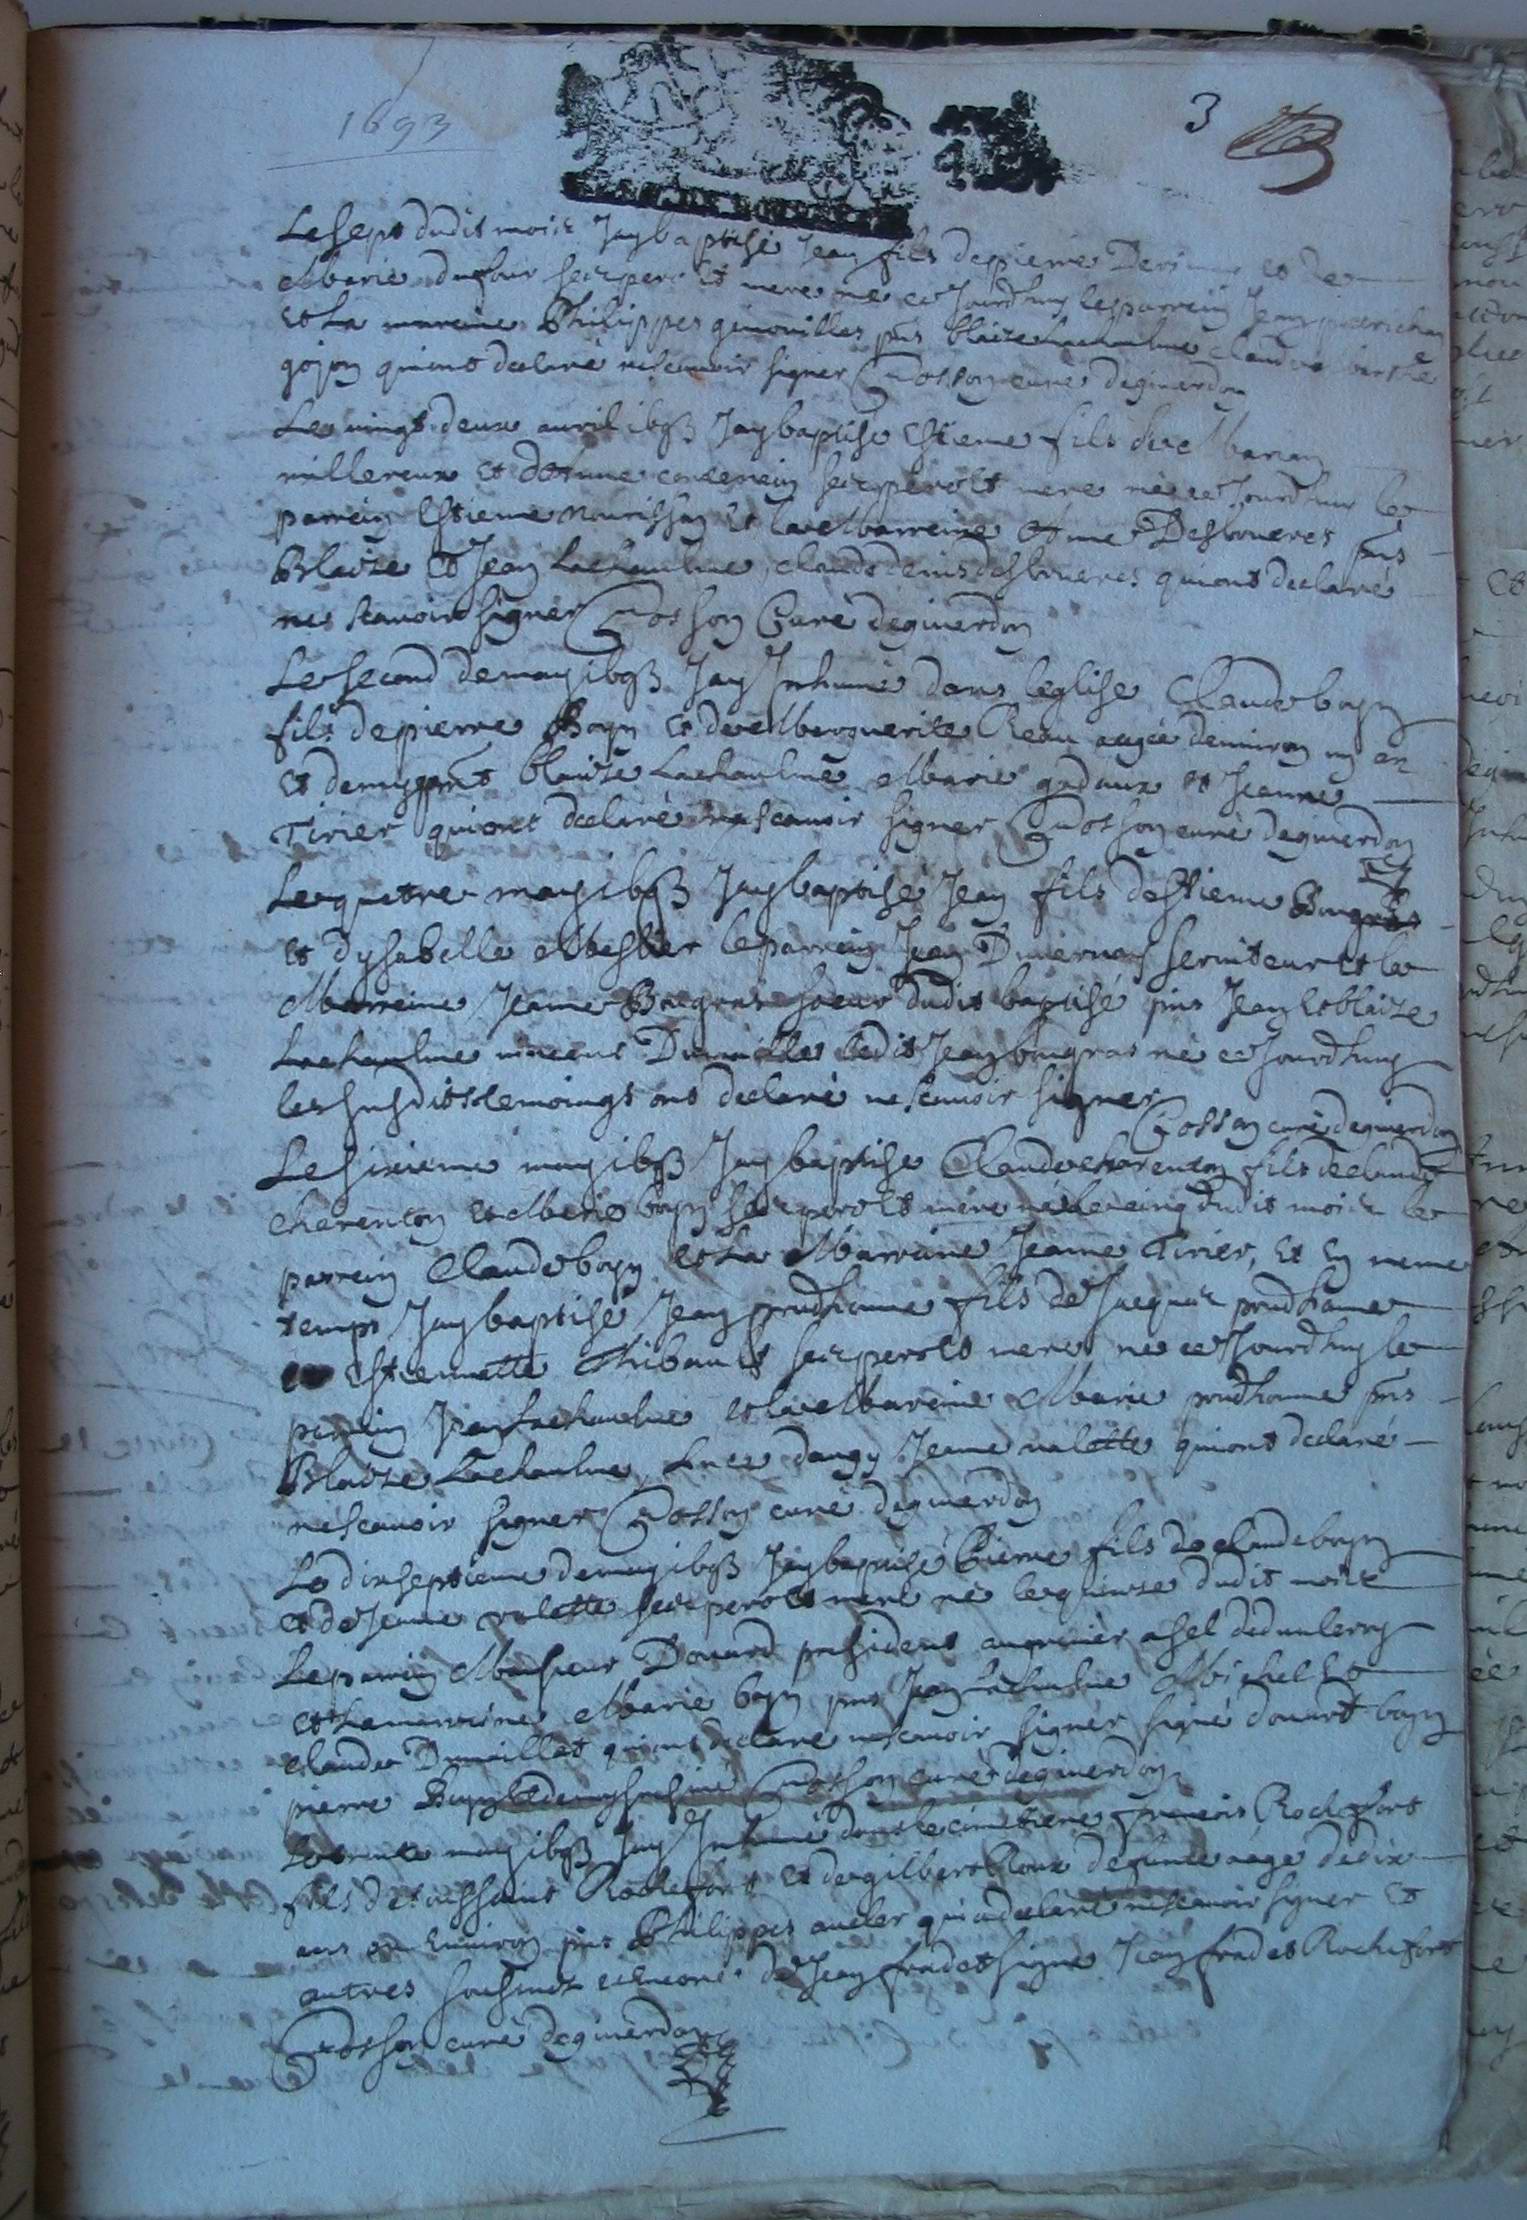 1693
3
Le sept dudit mois Jay baptisé Jean fils de pierre et de
Marie dufour ses pere et mere né ce Jourdhuy le parrein Jean
et la mareine Philippes genouilles pns blaize Lachaulme Claude
gojon qui ont declaré ne scauoir signer Cosson curé deguerdon
Le vingt deux auril 1693 Jay baptisé Estiene fils de Marian
millereux et d'Anne ses pere et mere né ce Jourdhuy le
parrein Estiene nourissan et la Marreine Anne Desboueres pns
Blaize et Jean Lachaulme, claude denis desboueres qui ont declaré
ne scauoir signer Cosson Curé deguerdon
Le second de may 1693 Jay Inhumé dans leglise Claude boyn
fils de pierre Boyn et de Marguerite Reau aagé denuiron un an
et demy pnt blaize Lachaulme Marie gadaux et Jeanne
Tirier qui ont declaré ne scauoir signer Cosson curé deguerdon
Le quatre may 1693 Jay baptisé Jean fils destiene Bougras
et dysabelle Meslier le parrein Jean seruiteur et la
Marreine Jeanne Bougras soeur dudit baptisé pns Jean et blaize
Lachaulme uincent Dumillet ledit Jean bougras né ce Jourdhuy
les susdits temoings ont declaré ne scauoir signer
Cosson curé deguerdon
Le sixieme may 1693 Jay baptisé Claude charenton fils de claude
charenton et Marie boyn ses pere et mere né le cinq dudit mois le
parrein Claude boyn et la Marreine Jeanne Tirier, et en meme
temps Jay baptisé Jean prudhomme fils de Jacques prudhomme
et Estiennette Thibault ses pere et mere né ce Jourdhuy le
parrein Jean Lachaulme et la Mareine Marie prudhomme pns
Blaize Lachaulme, Luce dangy Jeanne ualette qui ont declaré
ne scauoir signer Cosson curé deguerdon
Le dixseptieme de may 1693 Jay baptisé Pierre fils de claude boyn
et de Jeanne valette ses pere et mere né le quinze dudit mois
Le parrein Monsieur Douard president au grenier a sel de dunlerroy
et la marreine Marie boyn pns Jean Lachaulme Michel et
claude Dumillet qui ont declaré ne scauoir signer signé douard boyn
pierre Boyn et de moy soussigné Cosson curé deguerdon
Le trente may 1693 Jay Inhumé dans le cimetiere francois Rochefort
fils de toussaint Rochefort et de gilberte Roux defunte aagé de dix
ans ou enuiron pns Philippes aucler qui a declaré ne scauoir signer et
autres soussignez de Jean fradet signé Jean fradet Rochefort
Cosson curé deguerdon